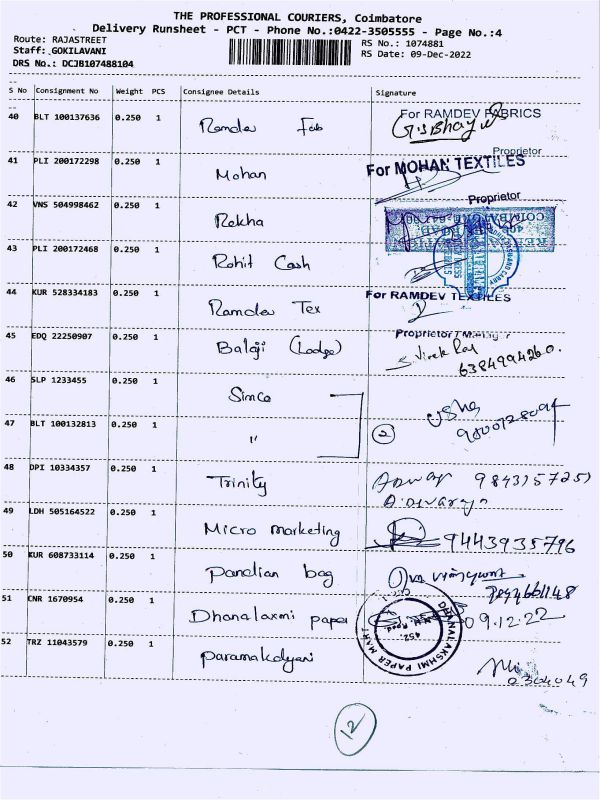 THE PROFESSIONAL COURIERS, Coimbatore
Delivery Runsheet - PCT - Phone No.:0422-3505555 - Page No.:4
Route: RAJASTREET
RS No.: 1074881
Staff: GOKILAVANI
RS Date: 09-Dec-2022
DRS No.: DCJB107488104
S No Consignment No Weight PCS Consignee Details Signature
40 BLT 100137636 0.250 1 Ramdev Fab For RAMDEV FABRICS
Proprietor
41 PLI 200172298 0.250 1 Mohan For MOHAN TEXTILES
Proprietor
42 VNS 504998462 0.250 1 Rekha
43 PLI 200172468 0.250 1 Rohit Cash
44 KUR 528334183 0.250 1 Ramdev Tex For RAMDEV TEXTILES
Proprietor / Manager
45 EDQ 22250907 0.250 1 Balaji (Lodge) S. Vivek Raj
6384994260.
46 SLP 1233455 0.250 1 Simco Usha
47 BLT 100132813 0.250 1 " 2
48 DPI 10334357 0.250 1 Trinity
49 LDH 505164522 0.250 1 Micro marketing 9443935796
50 KUR 608733114 0.250 1 pandian bag
51 CNR 1670954 0.250 1 Dhanalaxmi paper DHANALAKSHMI PAPER MART 09.12.22
52 TRZ 11043579 0.250 1 paramakalyani
12